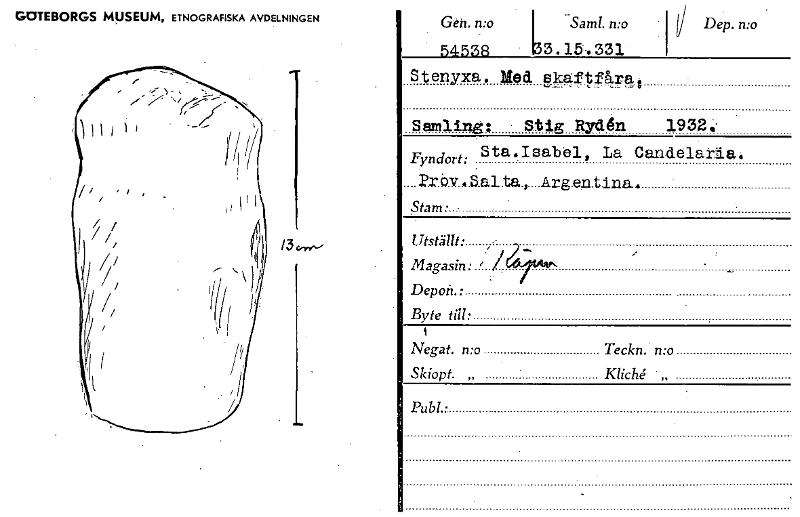 GÖTEBORGS MUSEUM, ETNOGRAFISKA AVDELNINGEN
13 cm
Gen. n:o Saml. n:o Dep. n:o
54538 33.15.331
Stenyxa. Med skaftfåra.
Samling: Stig Rydén 1932.
Fyndort: Sta.Isabel, La Candelaria.
Prov.Salta, Argentina.
Stam:
Utställt:
Magasin:
Depon.:
Byte till:
Negat. n:o Teckn. n:o
Skiopt. „ Kliché „
Publ.: